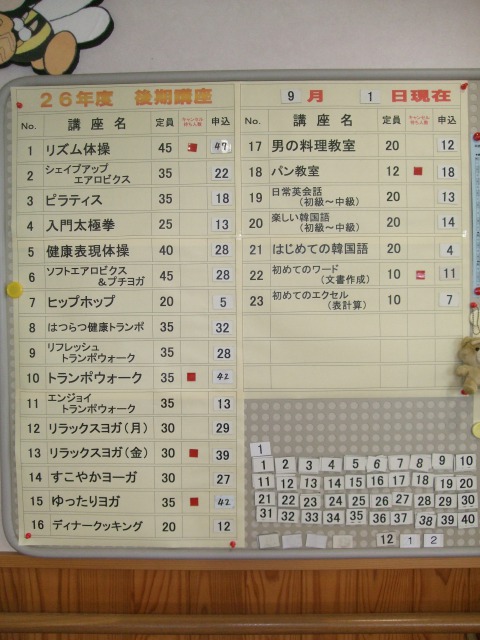 26年度　後期講座
No. 講座名 定員 キャンセル待ち人数 申込
1 リズム体操 45 47
2 シェイプアップ
エアロビクス 35 22
3 ピラティス 35 18
4 入門太極拳 25 13
5 健康表現体操 40 28
6 ソフトエアロビクス
&プチヨガ 45 28
7 ヒップホップ 20 5
8 はつらつ健康トランポ 35 32
9 リフレッシュ
トランポウォーク 35 28
10 トランポウォーク 35 42
11 エンジョイ
トランポウォーク 35 13
12 リラックスヨガ(月) 30 29
13 リラックスヨガ(金) 30 39
14 すこやかヨガ 30 27
15 ゆったりヨガ 35 42
16 ディナークッキング 20 12
9月 1日現在
No. 講座名 定員 キャンセル待ち人数 申込
17 男の料理教室 20 12
18 パン教室 12 18
19 日常英会話
(初級~中級) 20 13
20 楽しい韓国語
(初級~中級) 20 14
21 はじめての韓国語 20 4
22 初めてのワード
(文書作成) 10 11
23 初めてのエクセル
(表計算) 10 7
1
1 2 3 4 5 6 7 8 9 10
11 12 13 14 15 16 17 18 19 20
21 22 23 24 25 26 27 28 29 30
31 32 33 34 35 36 37 38 39 40
12 1 2